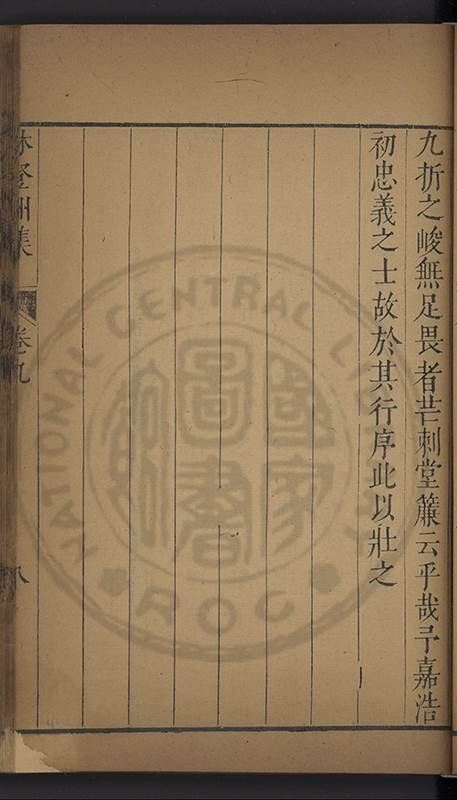 九折之峻無足畏者芒刺堂簾云乎哉予嘉浩
初忠義之士故於其行序此以壯之
林登州集
卷九
八
NATIONAL CENTRAL LIBRARY
國家圖書館
ROC